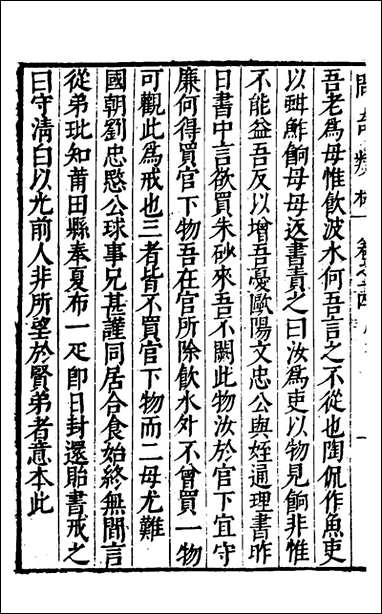 吾老為母惟飲波水何吾言之不從也陶侃作魚吏
以坩鮓餉母母返書責之曰汝為吏以物見餉非惟
不能益吾反以增吾憂歐陽文忠公與姪通理書昨
日書中言欲買朱砂來吾不闕此物汝於官下宜守
廉何得買官下物吾在官所除飲水外不曾買一物
可觀此為戒也三者皆不買官下物而二母尤難
國朝劉忠愍公球事兄甚謹同居合食始終無間言
從弟玭知莆田縣奉夏布一疋卽日封還貽書戒之
曰守清白以光前人非所望於賢弟者意本此